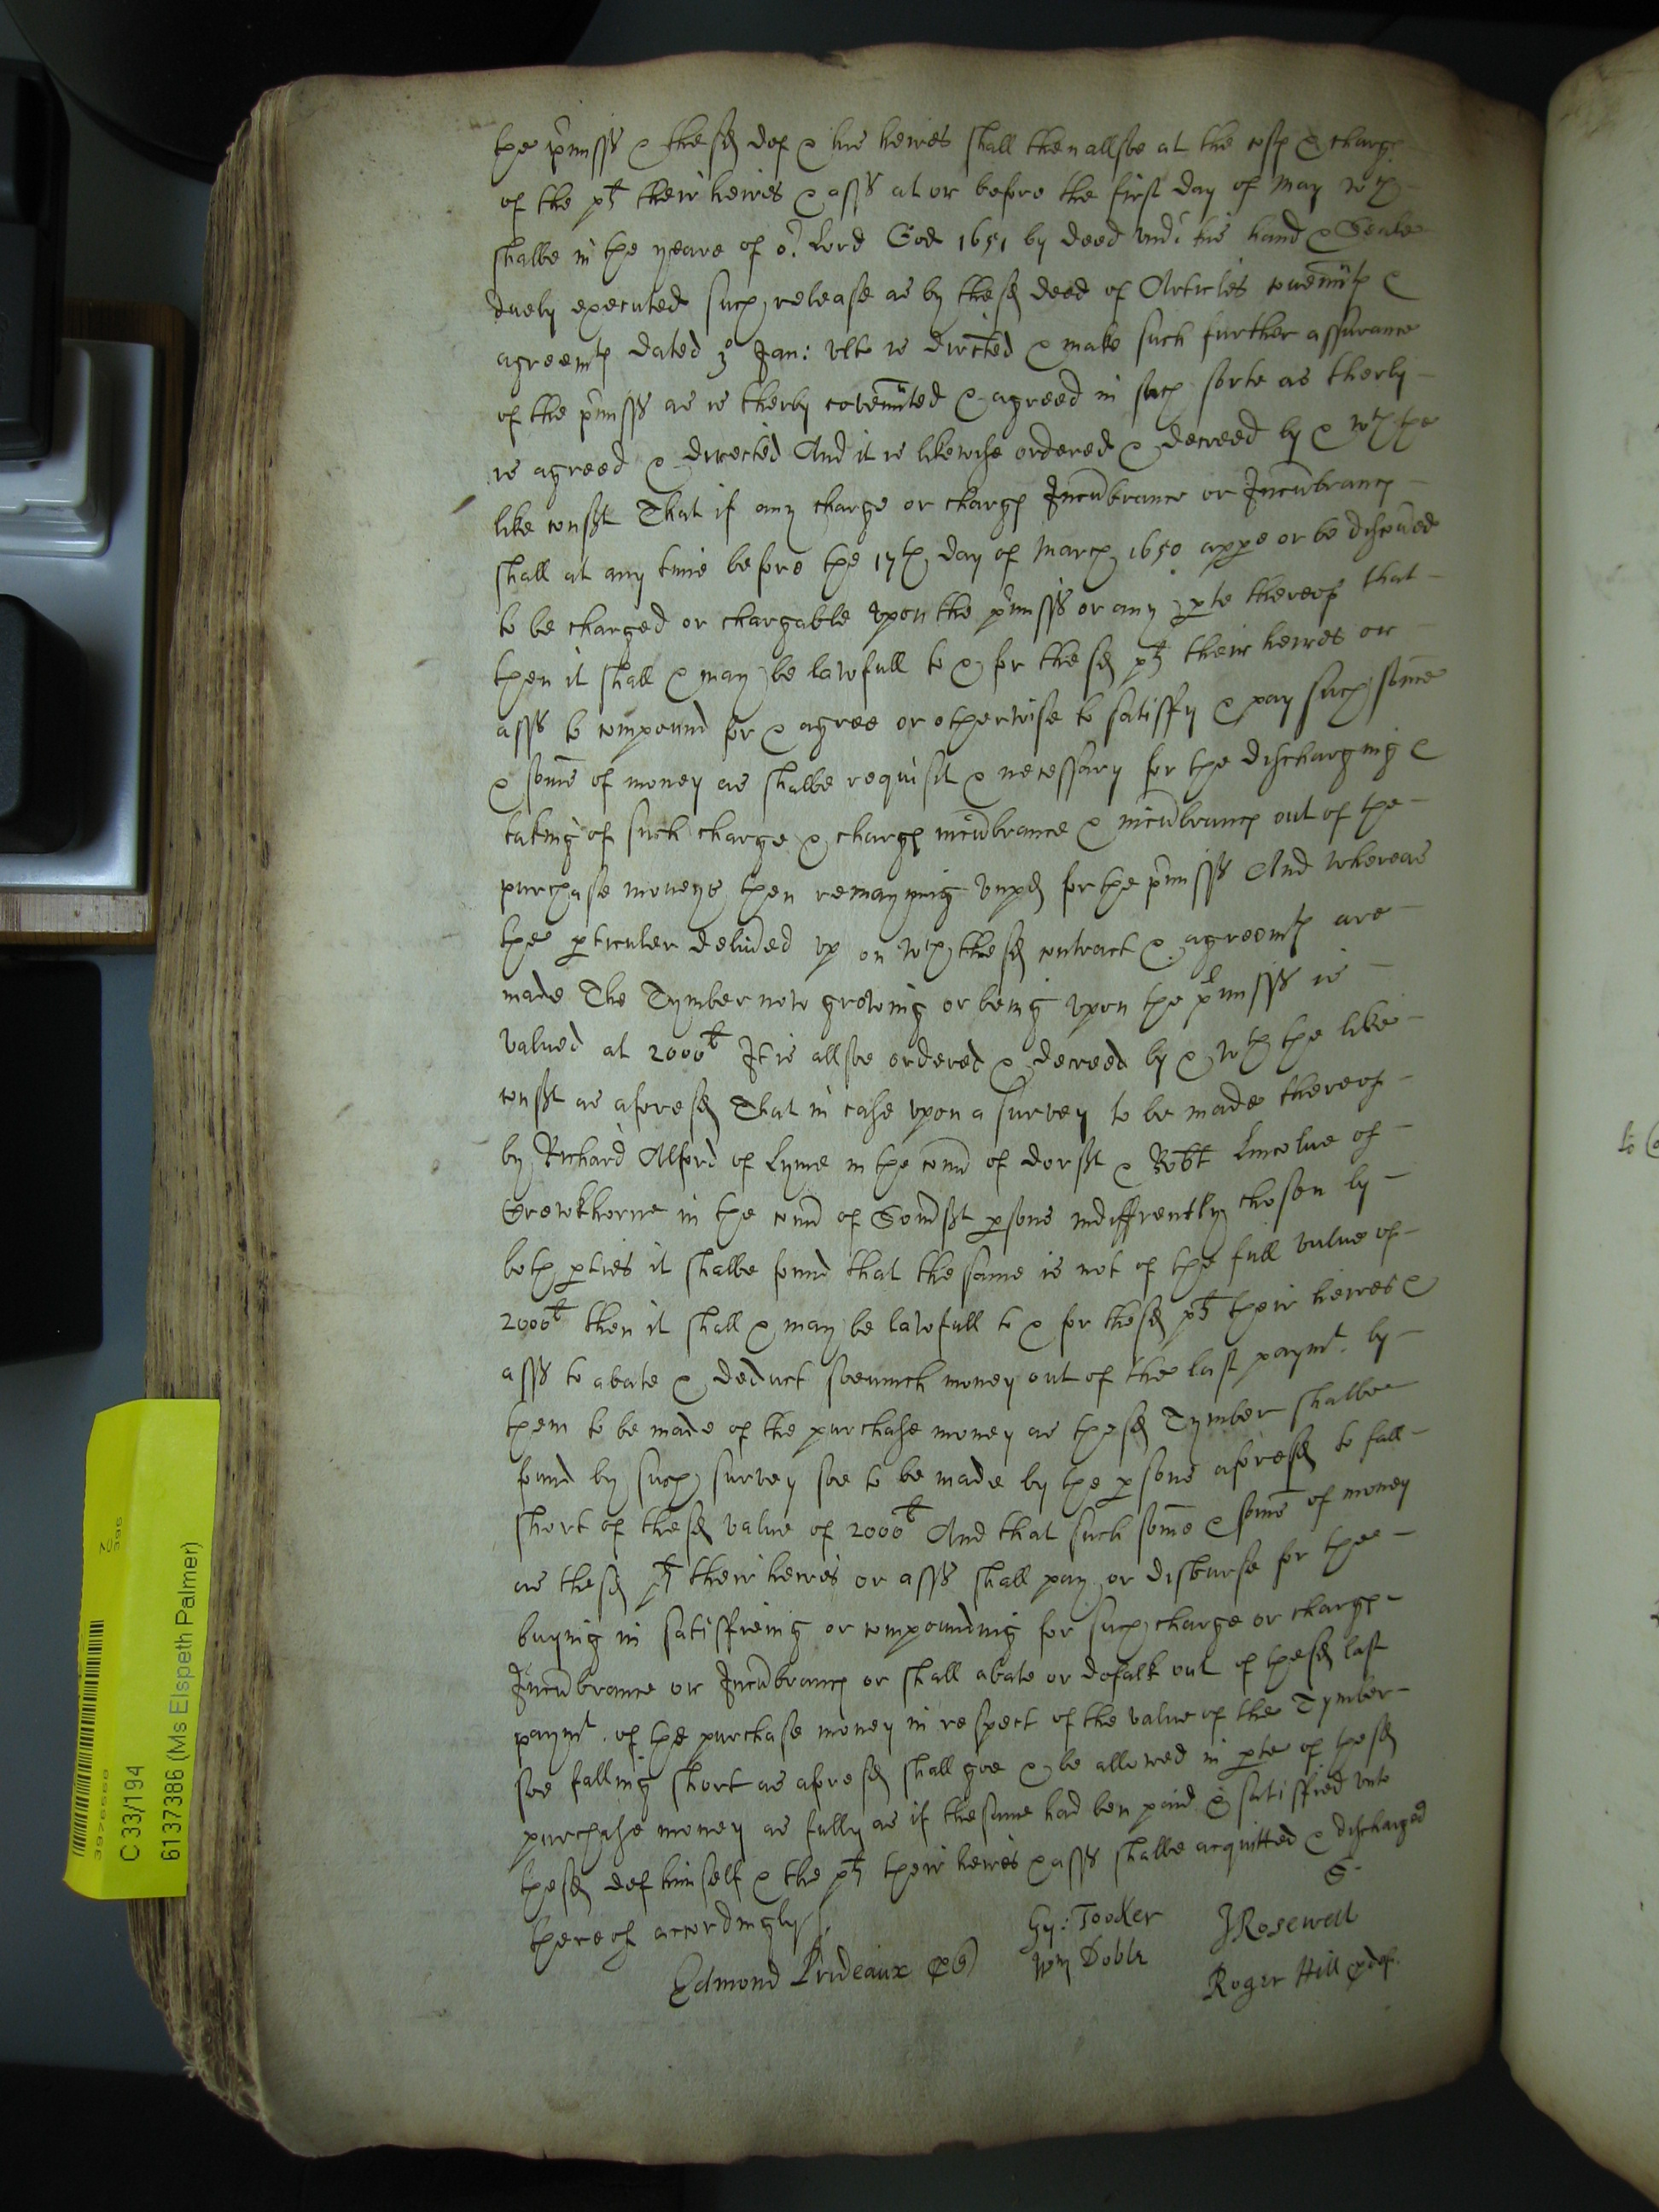 the p'miss & the sd def & his heires shall then allsoe at the costs & charges
of the plts their heires & asss at or before the first day of May wch
shalbe in the yeare of or Lord God 1651 by deed undr his hand & Seale
duely executed such release as by the sd deed of Articles covennts &
agreemts dated 3o Jan: ulto is directed & make such further assurance
of the p'miss as is therby covennted & agreed in such sorte as therby
is agreed & directed And it is likewise ordered & decreed by & wth the
like consst That if any charge or charges Incumbrance or Incumbrances
shall at any time before the 17th day of March 1650 appe or be discoued
to be charged or chargable upon the p'miss or any pte thereof that
then it shall & may be lawfull to & for the sd plts their heires or
asss to compound for & agree or otherwise to satisfy & pay such some
& somes of money as shalbe requisit & necessary for the discharging &
taking of such charge & charges incumbrance & incumbrances out of the
purchase moneys then remayning unpd for the p'miss And whereas
the pticuler deliued up on wch the sd contract & agreemts are
made The Tymber now growing or being upon the p'miss is
valued at 2000l It is allsoe ordered & decreed by & wth the like
consst as aforesd That in case upon a survey to be made thereof
by Richard Alford of Lyme in the coun of Dorsst & Robt Lincolne of
Crewkhorne in the coun of Somsst psons indiffrently chosen by
both pties it shalbe found that the same is not of the full value of
2000l then it shall & may be lawfull to & for the sd plts their heires &
asss to abate & deduct soe much money out of the last paymt by
them to be made of the purchase money as the sd Tymber shalbe
found by such survey soe to be made by the psons aforesd to fall
short of the sd value of 2000l And that such some & somes of money
as the sd plts their heires or asss shall pay or disburse for the
buying in satisfieing or compounding for such charge or charges
Incumbrance or Incumbrances or shall abate or defalk out of the sd last
paymt of the purchase money in respect of the value of the Tymber
soe falling short as aforesd shall goe & be allowed in pte of the sd
purchase money as fully as if the same had ben paid & satisfied unto
the sd def himself & the plts their heires & asss shalbe acquitted & discharged
thereof accordingly
Edmond Prideaux
Hy: Tooker
Wm Doble
J Rosewell
Roger Hill p def.
C 33/194
6137386 (Ms Elspeth Palmer)